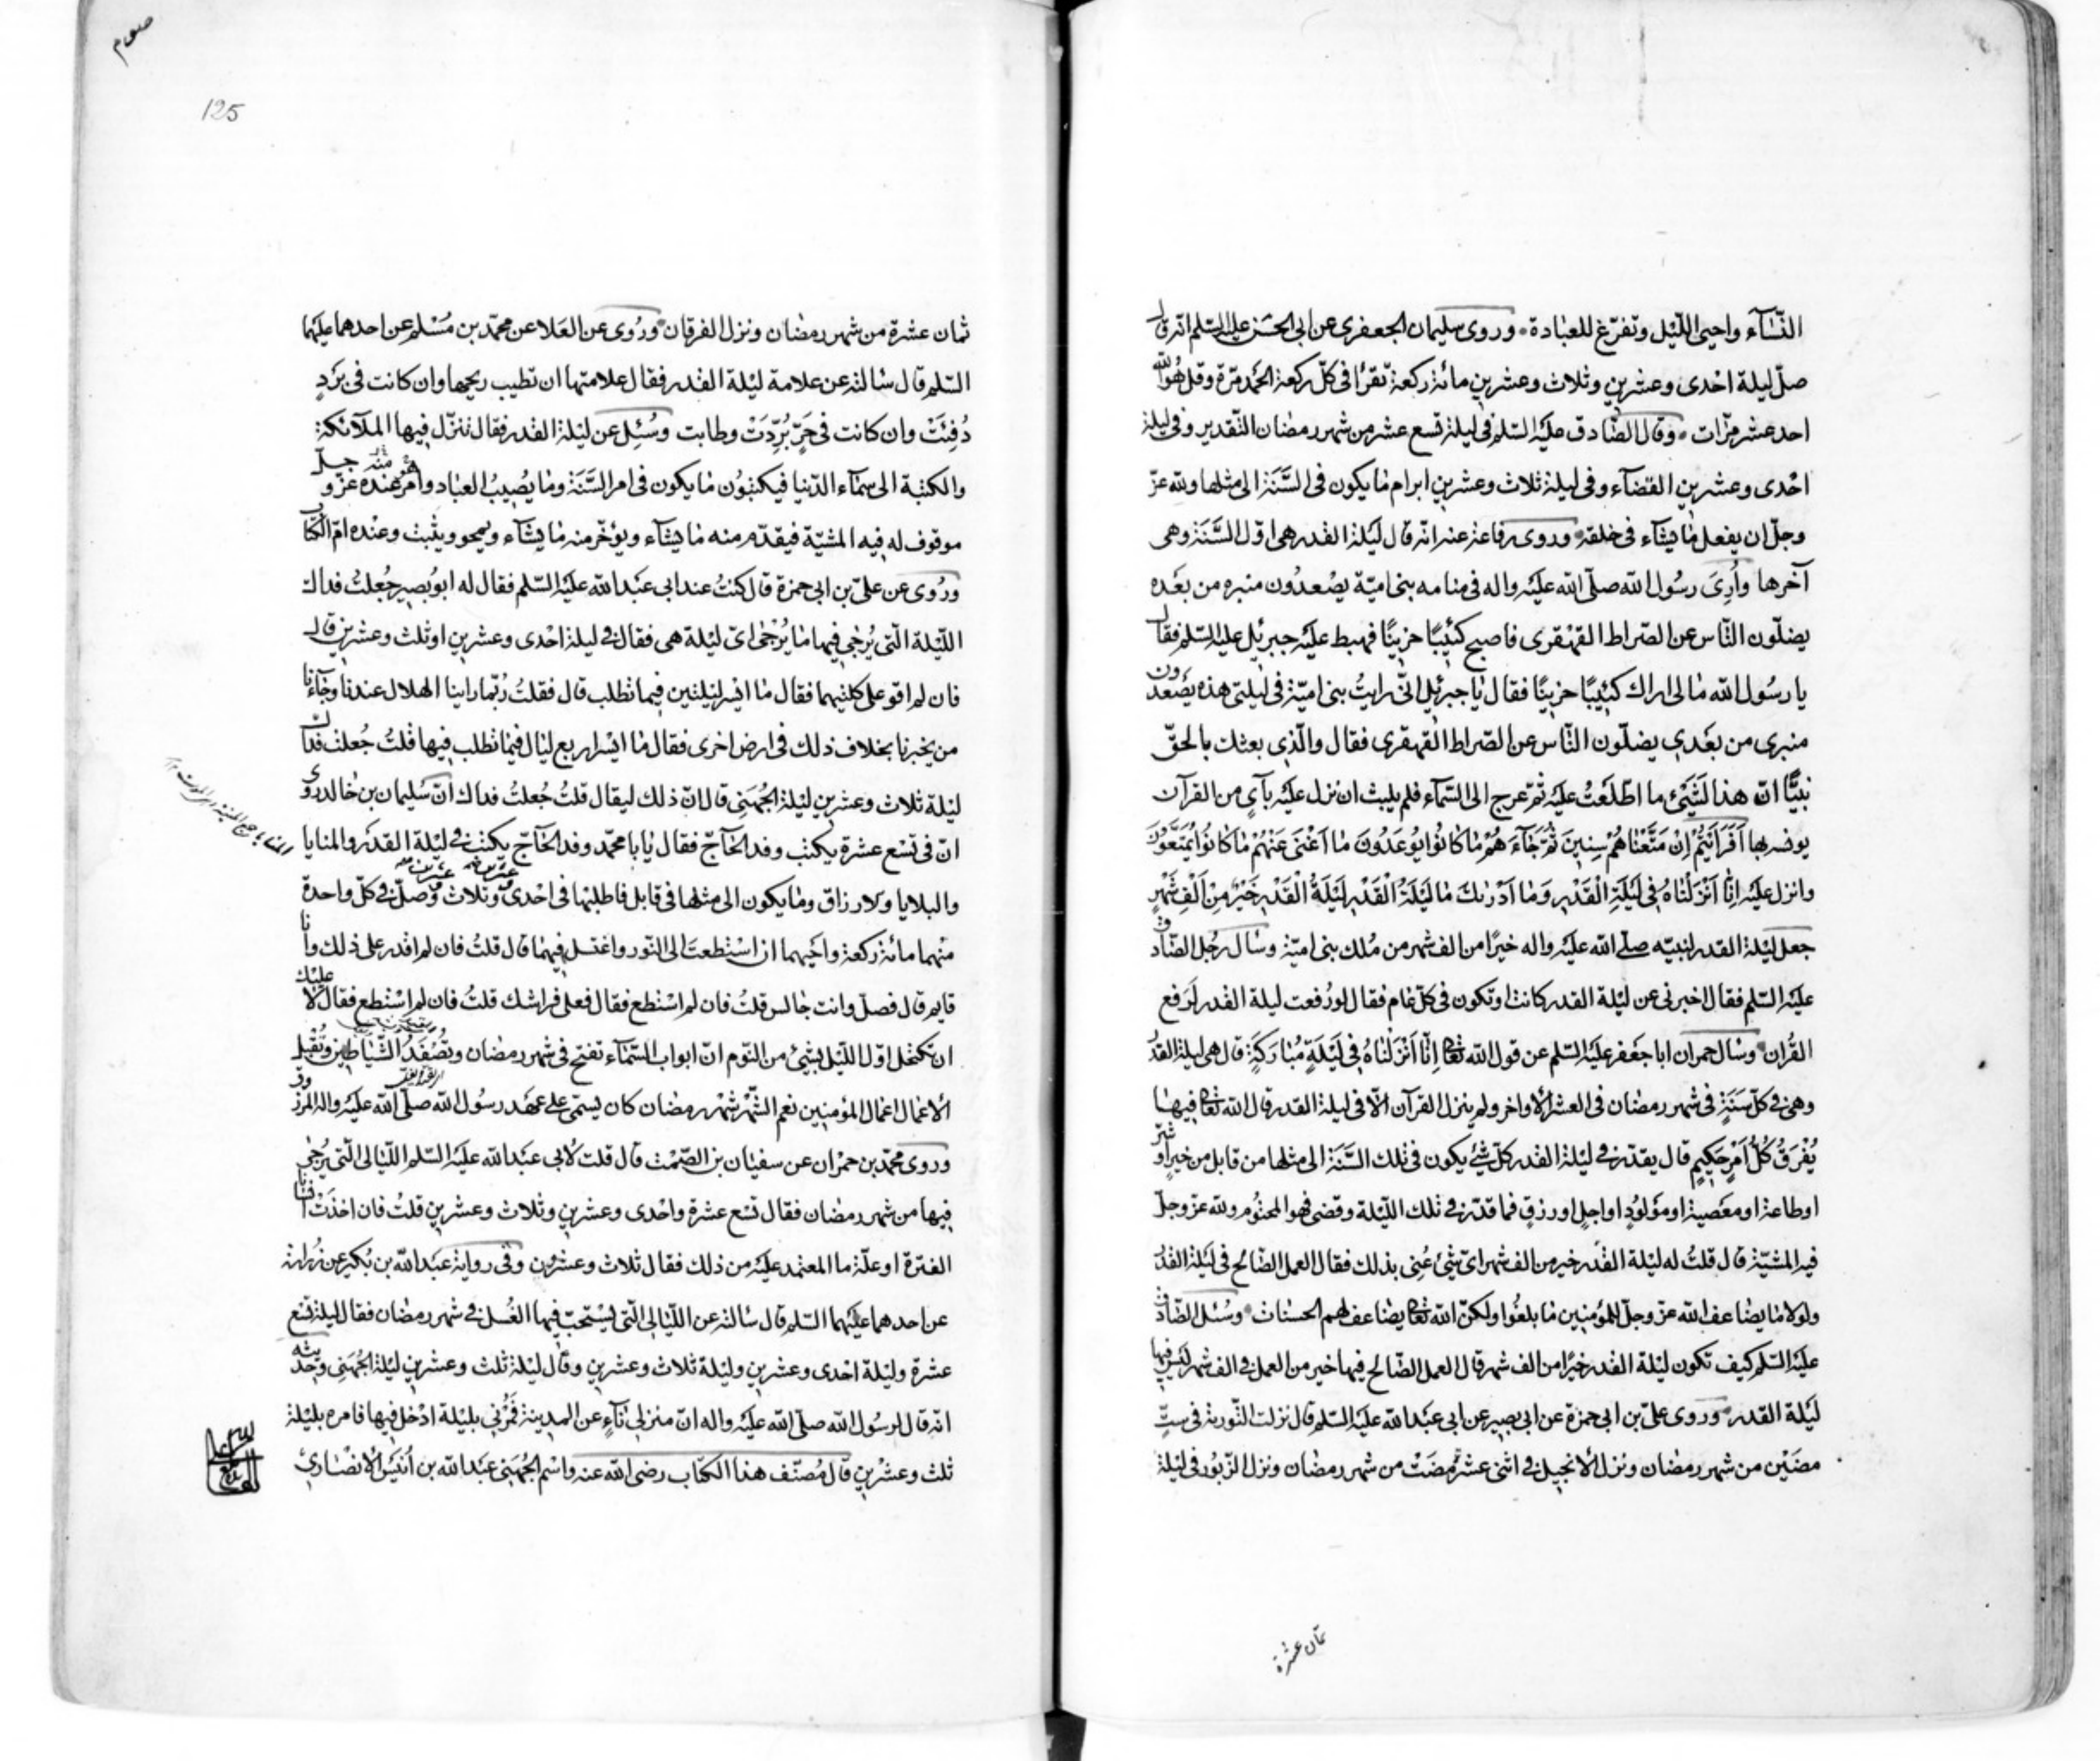 النّسآء واحيى اللّيل وتفرّغ للعبادة وروى سليمان الجعفرى عن ابى الحسن عليه السّلم انّه قال
صلّ ليلة احْدى وعشرين وثلاث وعشرين مائة ركعة تقرأ فى كلّ ركعة الحمد مرّة وقل هُو الله
احد عشر مرّات وقال الصّادق عليه السّلم فى ليلة تسع عشر من شهر رمضان التّقدير وفى ليلة
احْدى وعشرين القضآء وفى ليلة ثلاث وعشرين ابرام ما يكون فى السَّنَة الى مثلها ولله عزّ
وجلّ ان يفعل ما يشآء فى خلقه وروى رفاعة عنه انّه قال لَيلة القدر هى اوّل السَّنَة وهى
آخرها وأُرِىَ رسُول الله صلّى الله عليه واله فى منامه بنى اميّة يصْعدُون منبره من بعَده
يضلّون النّاس عن الصّراط القهقرى فاصبح كئيبًا حزينًا فهبط عليه جبرئيل عليه السّلم فقال
يا رسُول الله مالى اراك كئيبًا حزينًا فقال يا جبرئيل انّى رايتُ بنى اميّة فى ليلتى هذه يصْعدون
منبرى من بعَدي يضلّون النّاس عن الصّراط القهقرى فقال والّذي بعثك بالحقّ
نبيًّا انّ هذا لَشَيْئ ما اطّلَعْتُ عليه ثمّ عرج الى السّمآء فلم يلبث ان نزل عليه بآيٍ من القرآن
يونسه بها اَفَرَاَيْتُمْ اِنْ مَتَّعْناهُمْ سِنينَ ثُمّ جَآءَهُمْ ما كانُوا يُوعَدُونَ ما اَغْنى عَنْهُمْ ما كانُوا يُمَتَّعُونَ
وانزل عليه اِنّا اَنْزَلْناهُ فى لَيْلَةِ الْقَدْرِ وَما اَدْريكَ ما لَيْلَةُ الْقَدْرِ لَيْلَةُ الْقَدْرِ خَيْرٌ مِنْ اَلْفِ شَهْرٍ
جعل ليْلة القدر لنبيّه صلّى الله عليه واله خيرًا من الف شهر من مُلك بنى اميّة وسأل رجُل الصّادق
عليه السّلم فقال اخبرنى عن ليْلة القدر كانت او تكون فى كلّ عام فقال لو رُفعت ليلة القدر لرفع
القُران وسأل حمران ابا جعَفر عليه السّلم عن قول الله تعالى اِنّا اَنْزَلْناهُ فى لَيْلَةٍ مُبارَكَةٍ قال هى ليلة القدر
وهى فى كلّ سَنَةٍ فى شهر رمضان فى العشر الأواخر ولم ينزل القرآن الّا فى ليلة القدر قال الله تعالى فيها
يُفْرَقُ كُلُّ اَمْرٍ حَكيمٍ قال يقدّر فى ليْلة القدر كلّ شئ يكون فى تلك السَّنَة الى مثلها من قابل من خير او شرّ
او طاعة او معَصية او مَوْلُودٍ او اجلٍ او رزقٍ فما قدّر فى تلك اللّيلة وقضى فهو المحتُوم ولله عزّ وجلّ
فيه المشيّة قال قلتُ له ليْلة القدر خير من الف شهر اىّ شيْئ عُنى بذلك فقال العمل الصّالح فى ليْلة القدر
ولولا ما يضاعف الله عزّ وجلّ للمؤمنين ما بلغُوا ولكنّ الله تعالى يضاعف لهم الحسنات وسُئل الصّادق
عليه السّلم كيف تكون ليْلة القدر خيرًا من الف شهر قال العمل الصّالح فيها خير من العمل فى الف شهر ليْس فيها
ليْلة القدر وروى علىّ بن ابى حمزة عن ابى بصير عن ابى عبَد الله عليه السّلم قال نزلت التّورية فى ستٍّ
مضَيْن من شهر رمضان ونزل الأنجيل فى اثنى عشرة مضَتْ من شهر رمضان ونزل الزّبُور فى ليْلة
ثمان عشرة
125
ثمان عشرة من شهر رمضان ونزل الفرقان ورُوى عن العَلا عن محمّد بن مُسْلم عن احدهما عليهما
السّلم قال سالته عن علامة ليْلة القدر فقال علامتها ان تطيب ريحها وان كانت فى بَرَدٍ
دُفِئَتْ وان كانت فى حَرٍّ بُرِّدَتْ وطابت وسُئِل عن ليْلة القدر فقال تنزّل فيها الملآئكة
والكتبة الى سمآء الدّنيا فيكتبُون ما يكون فى امر السَّنَة وما يُصِيبُ العباد وامْر عنْده عزّ وجلّ
موقوف له فيه المشيّة فيقدّم منه ما يشآء ويؤخّر منه ما يشآء ويمحو ويثبت وعنْده امّ الكتاب
ورُوى عن علىّ بن ابى حمزة قال كنتُ عند ابى عبَد الله عليه السّلم فقال له ابو بُصير جُعلتُ فداك
اللّيْلة الّتى يُرْجى فيها ما يُرْجى اىّ ليْلة هى فقال فى ليلة احْدى وعشرين او ثلث وعشرين قال
فان لم اقو على كلتيهما فقال ما ايْسر ليْلتين فيما تطلب قال فقلتُ رُبّما راينا الهلال عندنا وجآءنا
من يخبرنا بخلاف ذلك فى ارض اخرى فقال ما ايْسر اربع ليال فيما تطلب فيها قلتُ جُعلت فداك
ليْلة ثلاث وعشرين ليْلة الجُهَنى قال انّ ذلك ليقال قلتُ جُعلتُ فداك انّ سُليمان بن خالد روى
انّ فى تسْع عشرة يكتب وفد الحآجّ فقال يا با محمّد وفد الحآجّ يكتب فى ليْلة القدَر والمنايا
والبلايا والارزاق وما يكون الى مثلها فى قابل فاطلبها فى احْدى وثلاث وصلّ فى كلّ واحدة
منْهما مائة ركعة واحْيهما ان اسْتطعتَ الى النّور واغتسل فيهما قال قلتُ فان لم اقدر على ذلك وانا
قايم قال فصلّ وانت جالس قلتُ فان لم اسْتطع فقال فعلى فراشك قلتُ فان لم اسْتطع فقال لا عليك
ان تكتحل اوّل اللّيل بشيْئ من النّوم انّ ابواب السّمآء تفتح فى شهر رمضان وتُصْفَدُ الشّياطين وتُقْبل
الأعمال اعمال المؤمنين نعم الشّهْر شهْر رمضان كان يسمّى على عهَد رسُول الله صلّى الله عليه واله المرزوق
وروى محمّد بن حمْران عن سفيان بن الصّمْت قال قلت لأبى عبَد الله عليه السّلم اللّيالى الّتى يُرْجى
فيها من شهر رمضان فقال تسْع عشرة واحْدى وعشرين وثلاث وعشرين قلتُ فان اخذَتْ انسانا
الفترة او علّة ما المعتمد عليه من ذلك فقال ثلاث وعشرُين وفى رواية عبَد الله بن بُكير عن زُرارة
عن احدهما عليهما السّلم قال سالته عن اللّيالى الّتى يُسْتحبّ فيها الغُسل فى شهر رمضان فقال ليلة تسْع
عشرة وليْلة احْدى وعشرين وليْلة ثلاث وعشرين وقال ليْلة ثلث وعشرين ليْلة الجُهَنى وحديثه
انّه قال لرسُول الله صلّى الله عليه واله انّ منزلى نآءٍ عن المدينة فَمُرْنى بليْلة ادْخل فيها فامره بليْلة
ثلث وعشْرين قال مُصنّف هذا الكتاب رضى الله عنه واسْم الجُهَنى عبَد الله بن أُنَيْس الأنْصارىّ